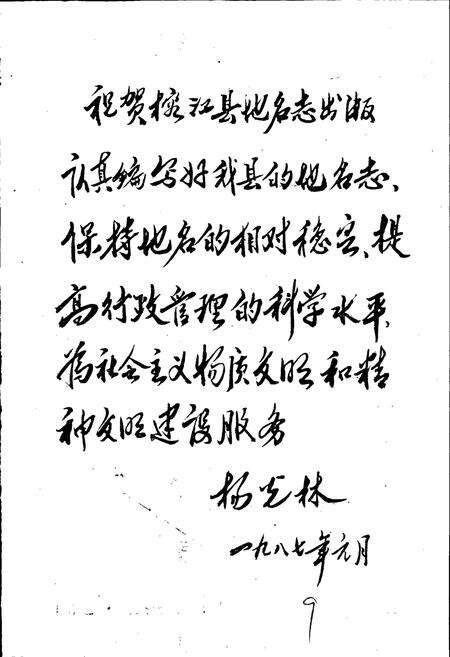 祝贺榕江县地名志出版
认真编写好我县的地名志、
保持地名的相对稳定、提
高行政管理的科学水平,
为社会主义物质文明和精
神文明建设服务
杨光林
一九八七年元月
9